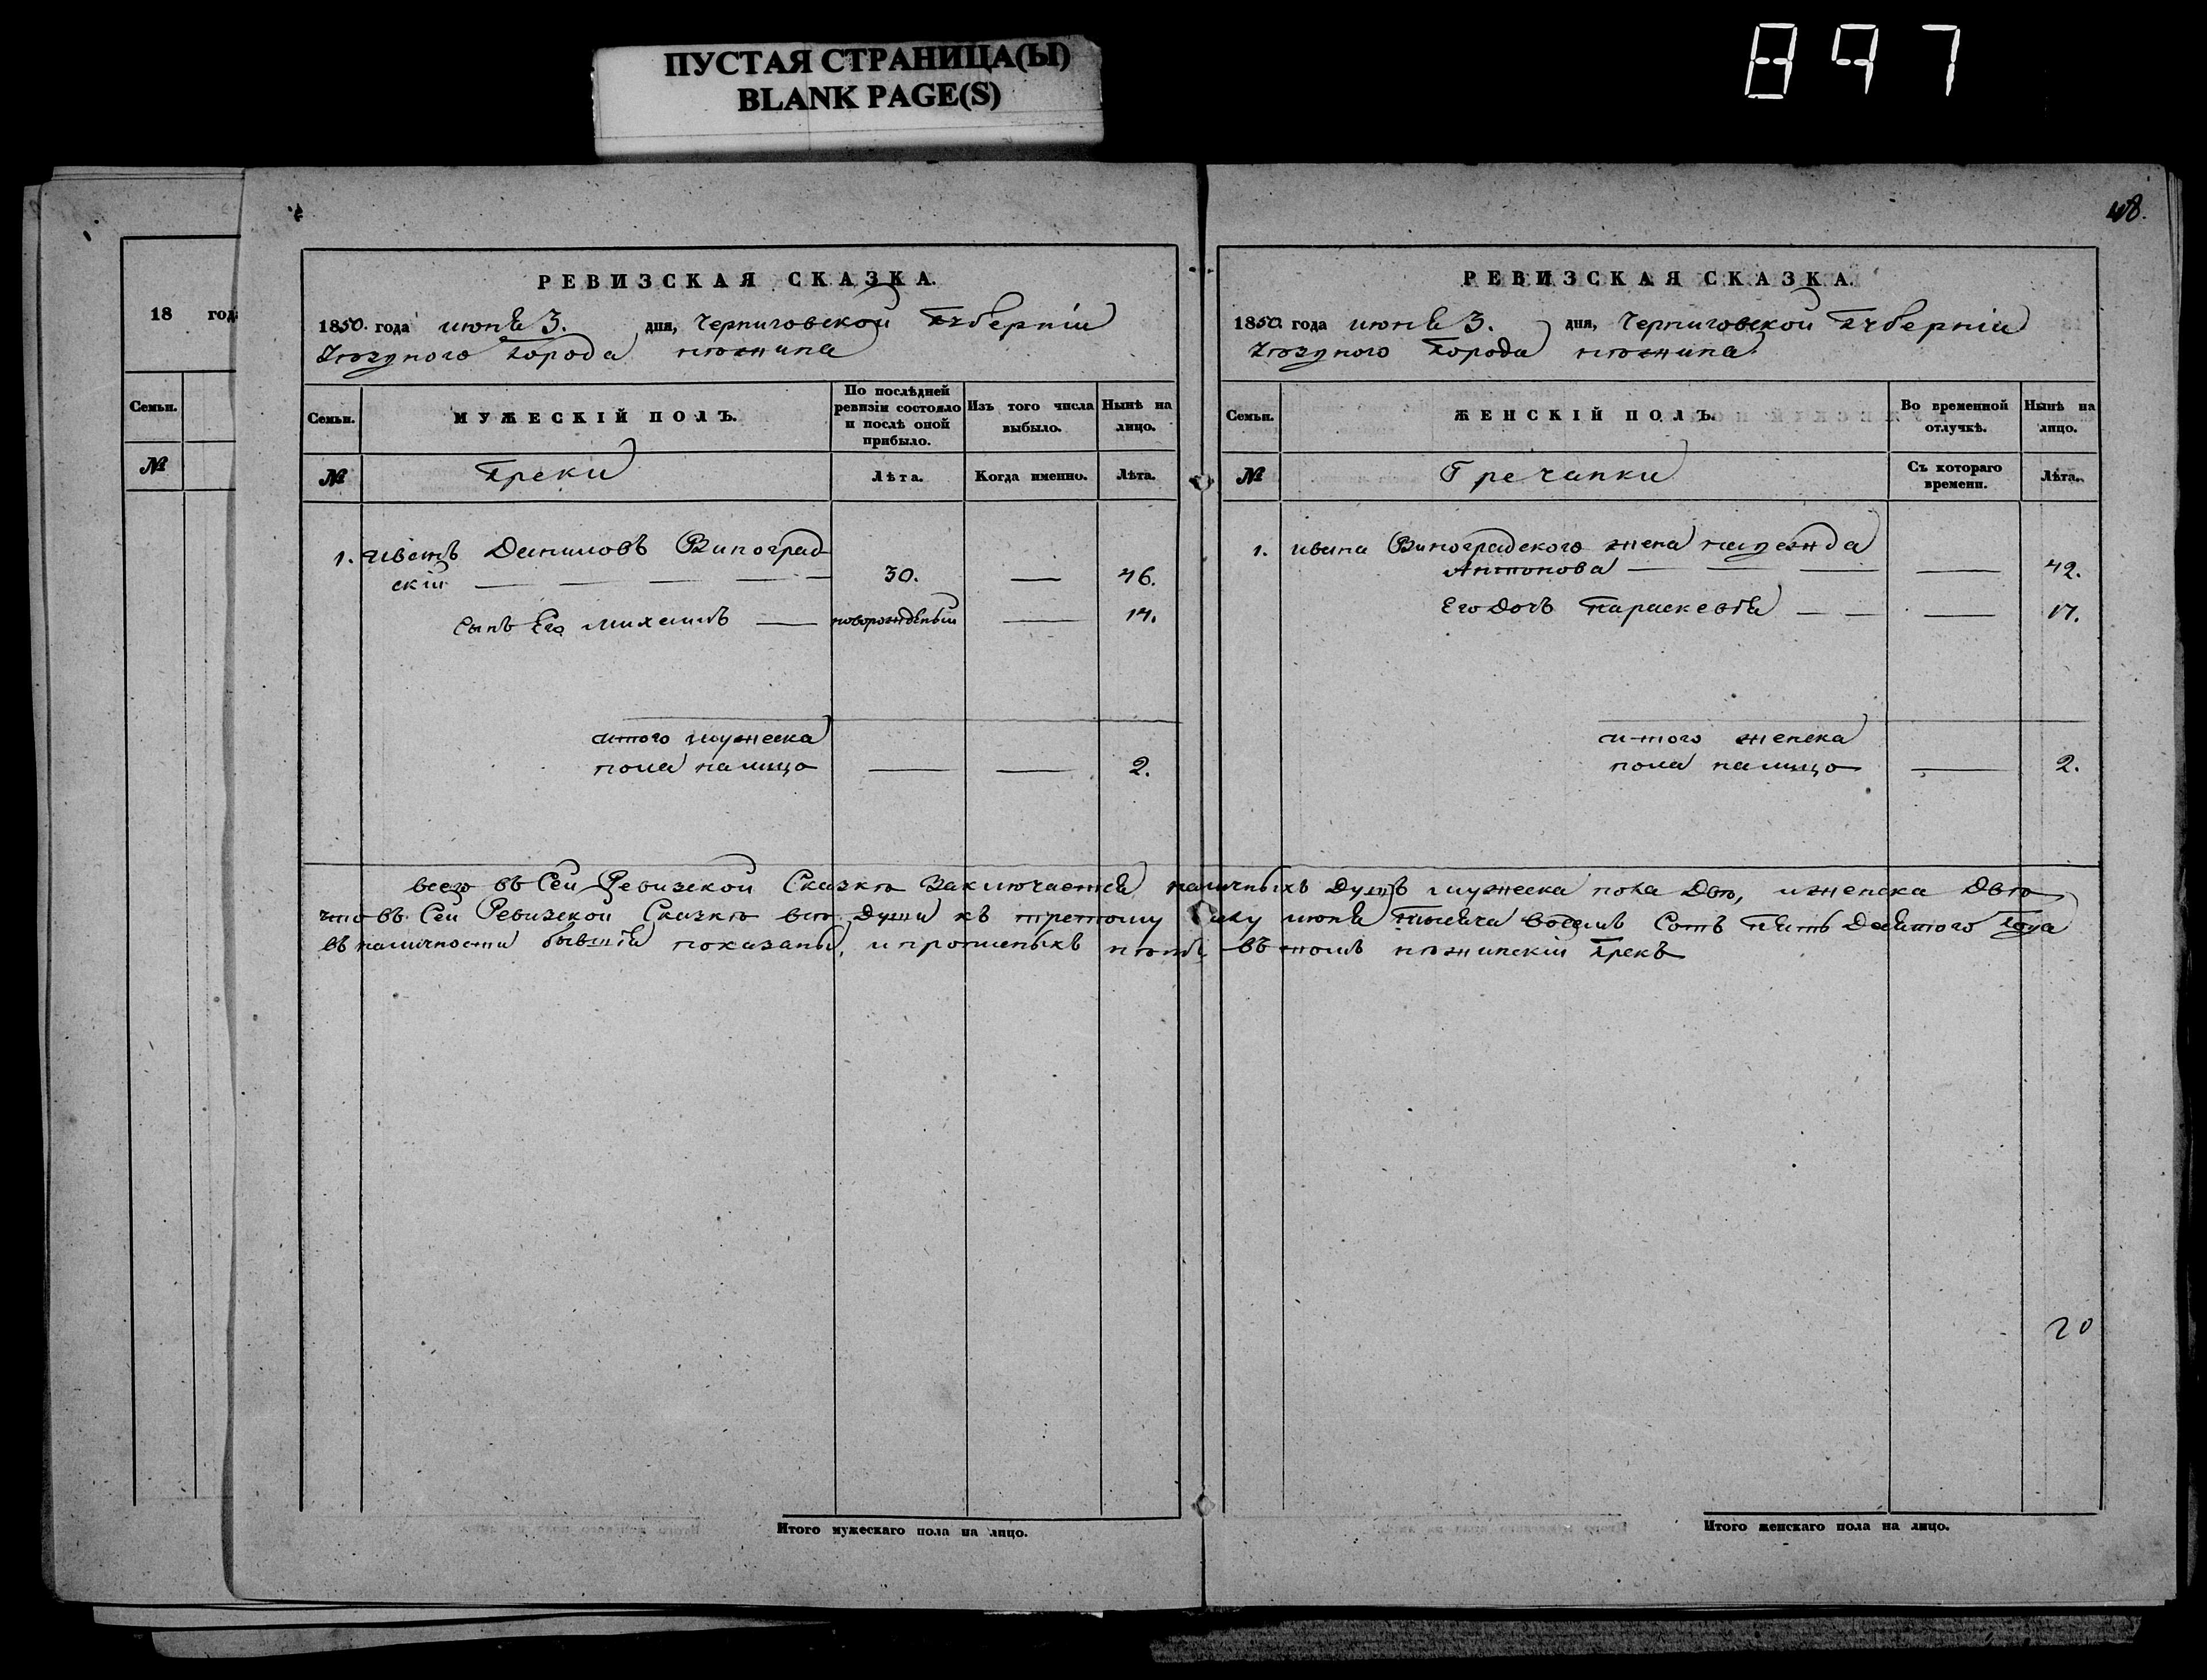 ПУСТАЯ СТРАНИЦА(Ы)
BLANK PAGE(S)
897
48.
18 год
Семьи.
№
РЕВИЗСКАЯ СКАЗКА.
1850. года июня 3. дня, Черниговской Губерніи
Уѣзднаго Города нѣжина
Семьи.
МУЖЕСКІЙ ПОЛЪ.
По послѣдней ревизіи состояло и послѣ оной прибыло.
Изъ того числа выбыло.
Нынѣ на лицо.
№
Греки
Лѣта.
Когда именно.
Лѣта.
1. Иванъ Даниловъ Виноград
скій 30. — 46.
Сынъ Его михаилъ — новорожденый — 14.
итого мужеска
пола налицо — — 2.
РЕВИЗСКАЯ СКАЗКА.
1850. года июня 3. дня, Черниговской Губерніи
Уѣзднаго Города нѣжина
Семьи.
ЖЕНСКІЙ ПОЛЪ.
Во временной отлучкѣ.
Нынѣ на лицо.
№
Гречанки
Съ котораго времени.
Лѣта.
1. ивана Виноградского жена надежда
Антонова — — 42.
Его дочь Параскевія — — 17.
итого женска
пола налицо — 2.
всего въ Сей Ревизской Сказкѣ Заключается наличныхъ Душъ мужеска пола Двѣ, иженска Двѣ
что въ Сей Ревизской Сказкѣ всѣ души къ третьему июня тысяча восемь Сотъ Пять Десятого Года
въ наличности бывшія показаны, и прописныхъ нѣтъ въ томъ нѣжинскій Грекъ
20
Итого мужескаго пола на лицо.
Итого женскаго пола на лицо.